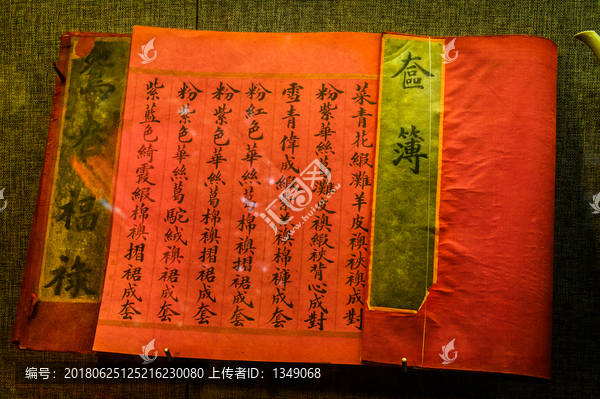 奩簿
菜青花緞灘羊皮襖裌襖成對
粉紫華絲葛灘襖緞裌背心成對
雪青偉成緞襖棉褲成套
粉紅色華絲葛棉襖摺裙成套
粉紫色華絲葛棉襖摺裙成套
粉紫色華絲葛駝絨襖裙成套
紫藍色綺霞緞棉襖摺裙成套
福祿
编号：20180625125216230080 上传者ID：1349068